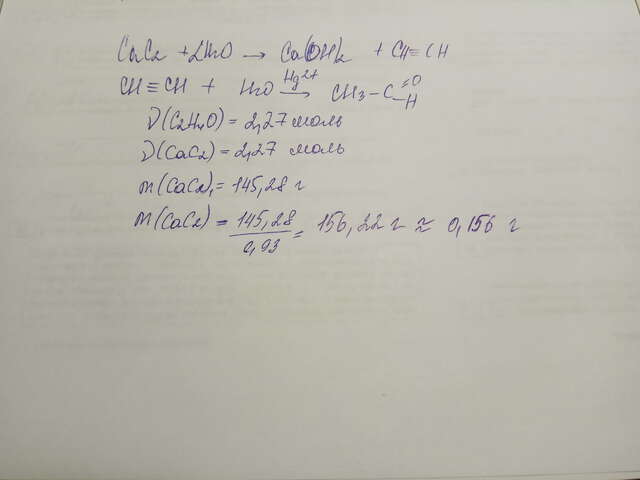 CaC2 + 2H2O → Ca(OH)2 + CH≡CH
CH≡CH + H2O Hg2+ → CH3-C=O-H
ν(C2H4O) = 2,27 моль
ν(CaC2) = 2,27 моль
m(CaC2) = 145,28 г
m(CaC2) = 145,28 / 0,93 = 156,22 г ≈ 0,156 г